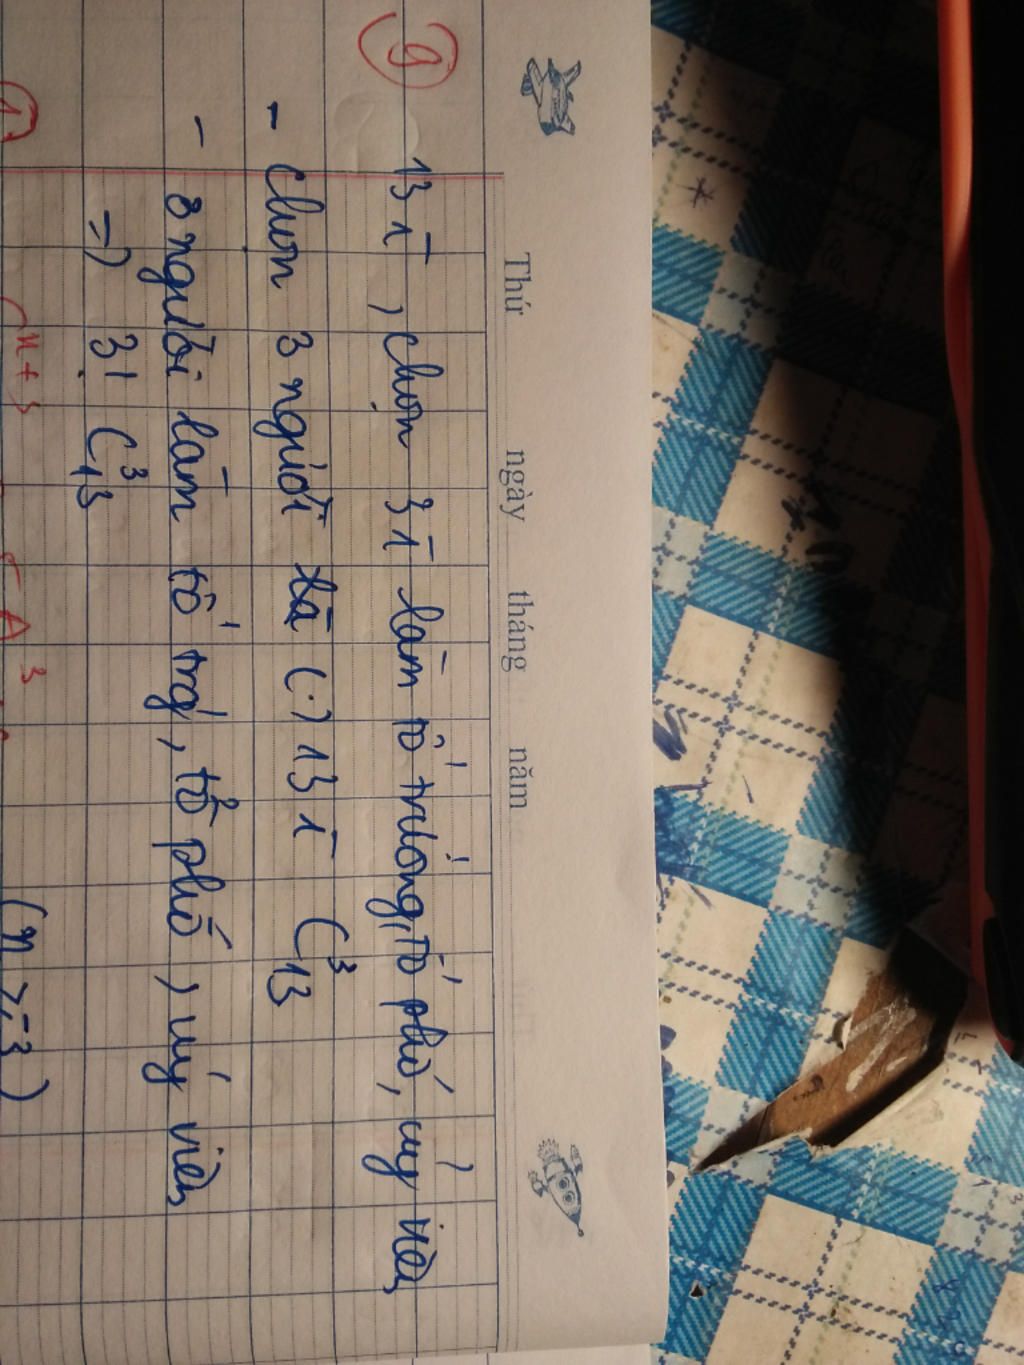 Thứ ngày tháng năm
9
13 ī, chọn 3 ī làm tổ trưởng, tổ phó, uỷ viên
- chọn 3 người từ (.) 13 ī C³₁₃
- 3 người làm tổ trg, tổ phó, uỷ viên
=) 3! C³₁₃
(n ≥ -3)